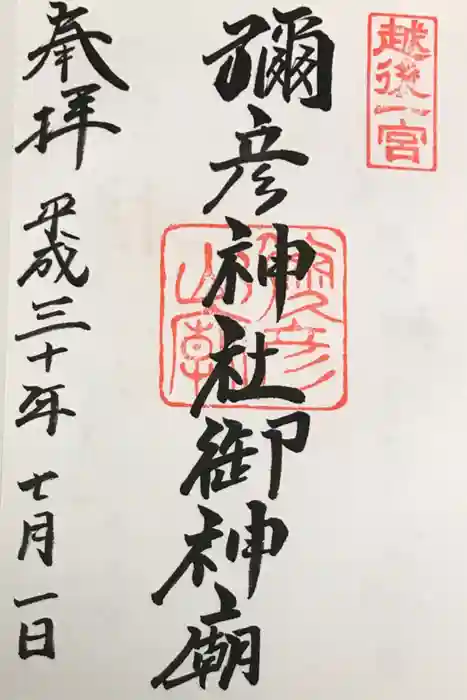 越後一宮
彌彦神社御神廟
彌彦山廟
奉拝
平成三十年七月一日